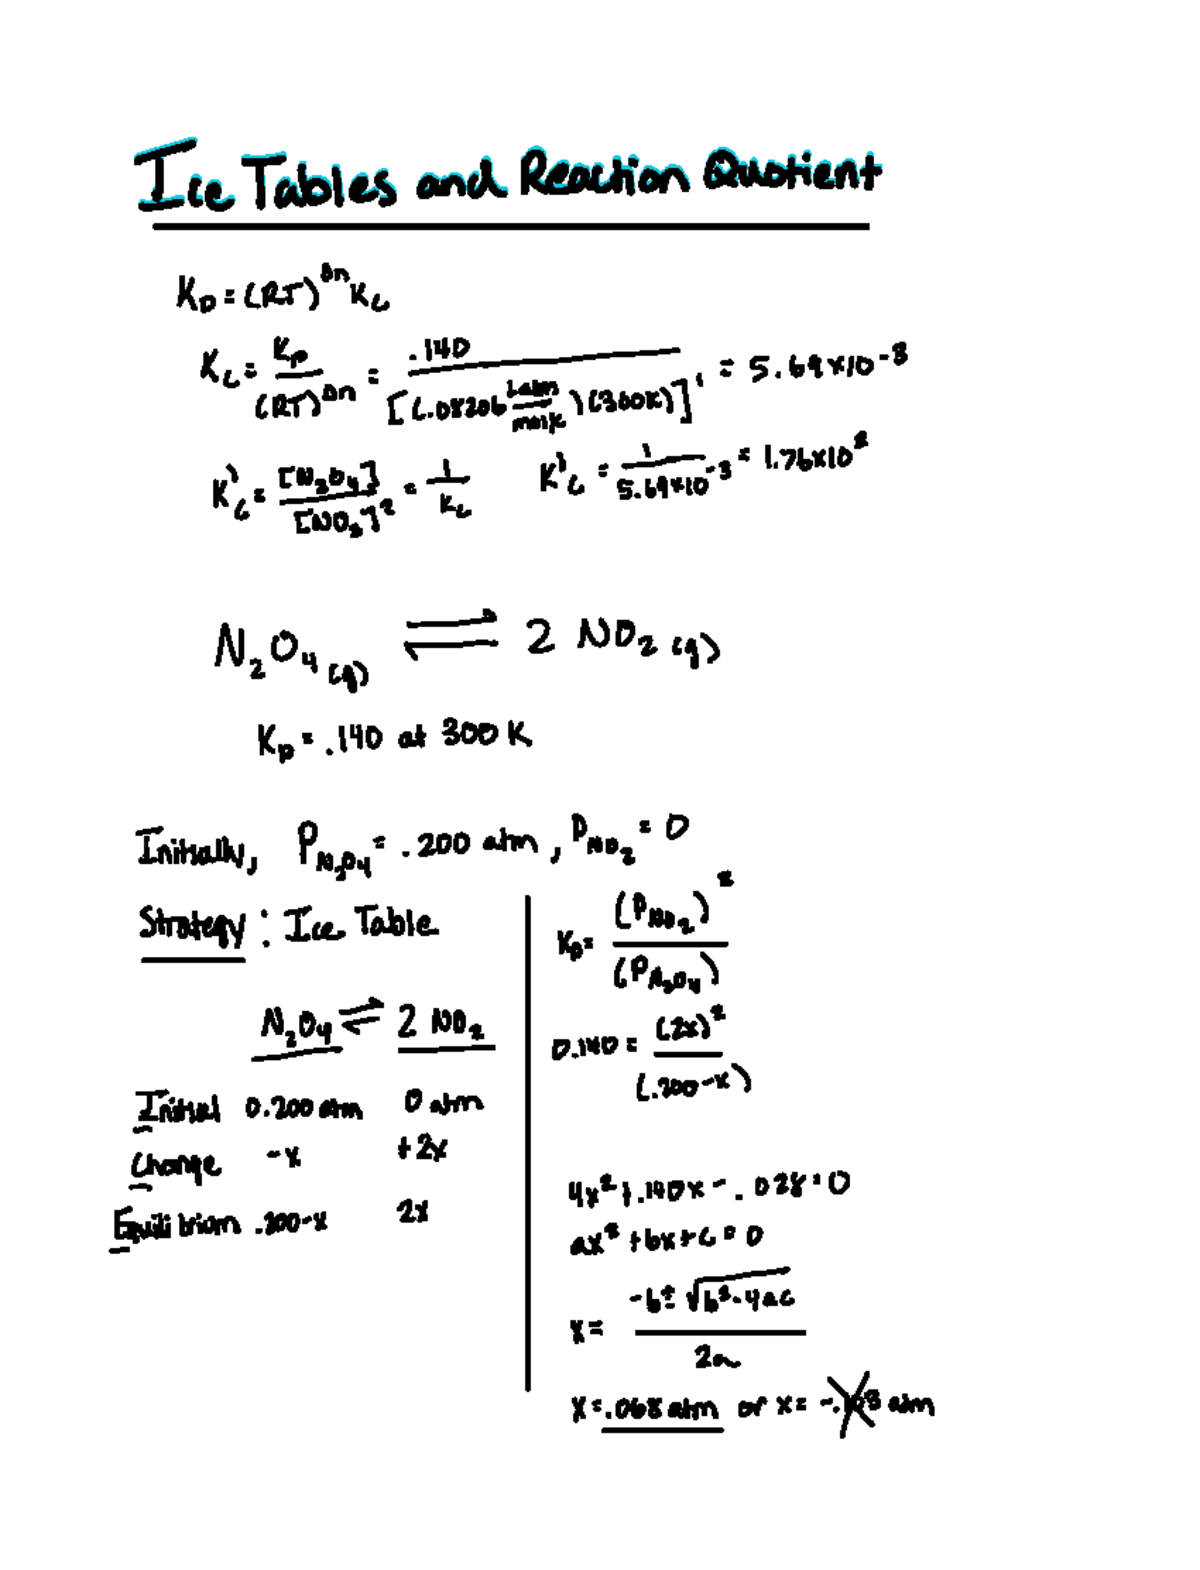 Ice Tables and Reaction Quotient
Kp = (RT)^Δn Kc
Kc = Kp / (RT)^Δn = .140 / [(.08206 L atm / mol K)(300K)]^1 = 5.69 x 10^-3
K'c = [N2O4] / [NO2]^2 = 1 / Kc    K'c = 1 / 5.69 x 10^-3 = 1.76 x 10^2
N2O4 (g) ⇌ 2 NO2 (g)
Kp = .140 at 300 K
Initially, P N2O4 = .200 atm, P NO2 = 0
Strategy: Ice Table
N2O4 ⇌ 2 NO2
Initial 0.200 atm 0 atm
Change -x +2x
Equilibrium .200-x 2x
Kp = (P NO2)^2 / (P N2O4)
0.140 = (2x)^2 / (.200-x)
4x^2 + .140x - .028 = 0
ax^2 + bx + c = 0
x = -b ± √b^2-4ac / 2a
x = .068 atm or x = atm